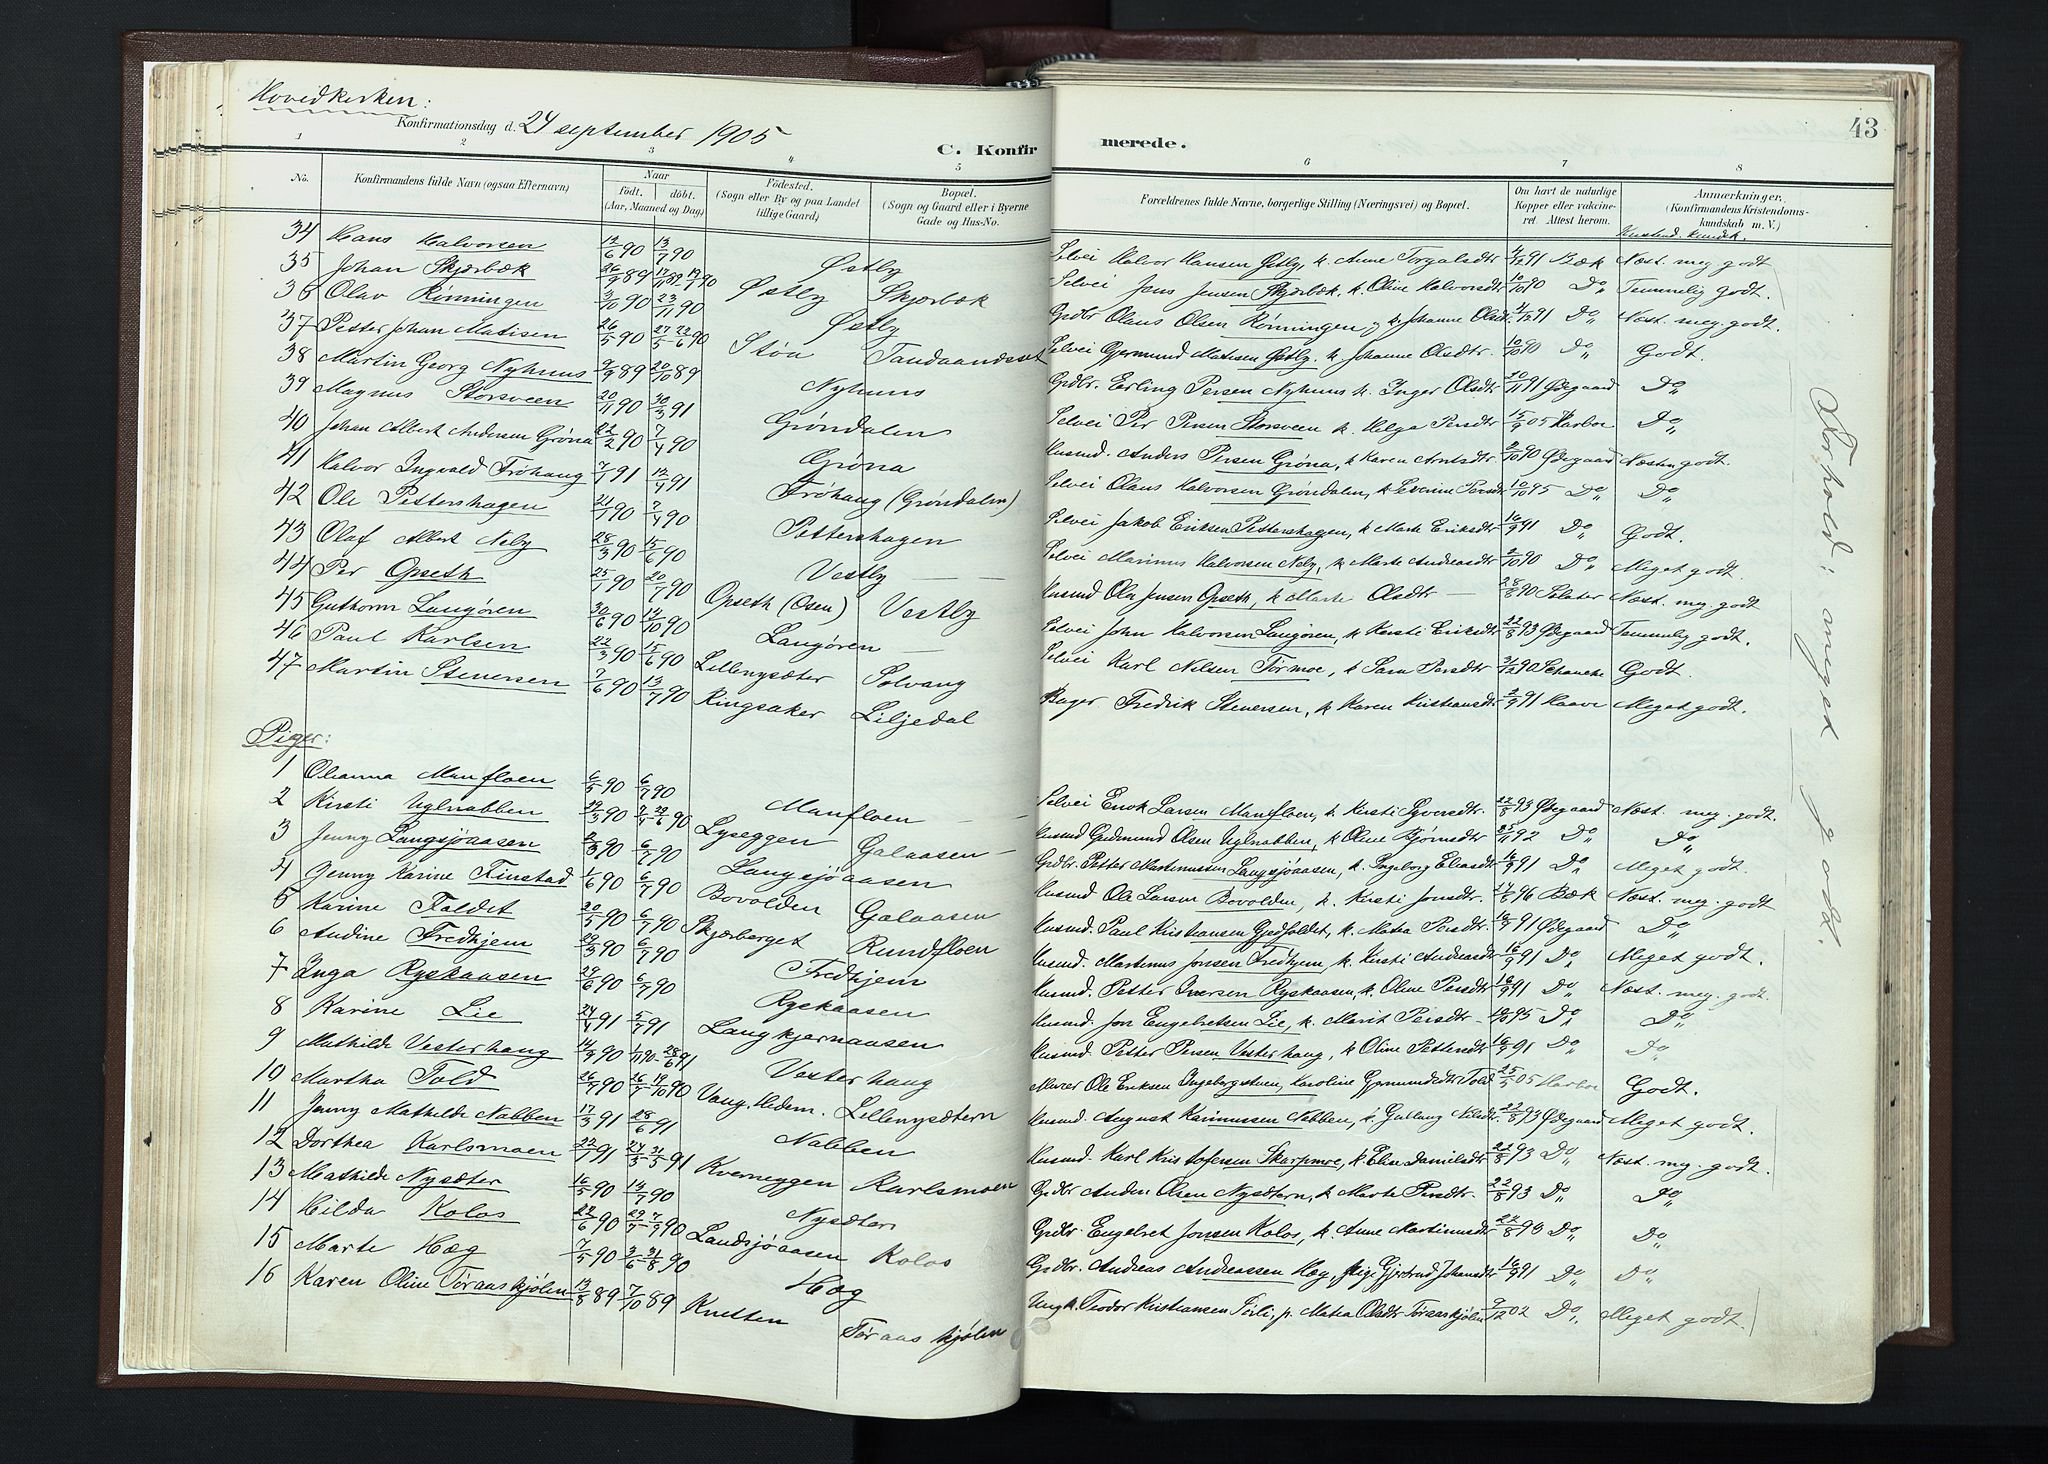 Hovedkirken:
Konfirmationsdag d. 24 september 1905
C. Konfir
merede.
43
1 2 3 4 5 6 7 8
No.
Konfirmandens fulde Navn (ogsaa Efternavn)
Naar
født. døbt.
(Aar, Maaned og Dag)
Fødested.
(Sogn eller By og paa Landet tillige Gaard)
Bopæl.
(Sogn og Gaard eller i Byerne Gade og Hus-No.
Forældrenes fulde Navne, borgerlige Stilling (Næringsvei) og Bopæl.
Om havt de naturlige Kopper eller vaccineret. Attest herom.
Anmærkninger.
(Konfirmandens Kristendomskundskab m. V.)
Kristend. kundsk.
34 Hans Halvorsen 12/6 90 13/7 90 Østby Selvei Halvor Hansen Østby, k. Anne Torgalsdtr 4/12 91 Bæk Næst. meg. godt
35 Johan Skjærbæk 26/9 89 Østby Skjærbæk Selvei Jens Jensen Skjærbæk, k. Oline Halvorsdtr 10/10 90 Do Temmelig godt.
36 Olav Rønningen 3/10 90 23/11 90 Østby Grdbr Olaus Olsen Rønningen, k. Johanne Olsdtr. 4/12 91 Do Næst. meg. godt.
37 Petter Johan Matisen 26/5 90 27/5 22/6 90 Støa Tandaandeset Selvei Gjermund Matisen Østby. k. Johanne Olsdtr. 10/10 90 Do Godt.
38 Martin Georg Nyhuus 9/9 89 20/10 89 Nyhuus Grdbr. Erling Persen Nyhuus k. Inger Olsdtr 20/11 91 Ødegaard Do
39 Magnus Storsveen 20/11 90 30/3 91 Grøndalen Selvei Per Persen Storsveen k. Helga Persdtr 15/9 05 Harboe Do
40 Johan Albert Andersen Grøna 22/2 90 7/4 90 Grøna Husmd. Anders Persen Grøna, k. Karen Arntsdtr 2/10 90 Ødegaard Næsten godt.
41 Halvor Ingvald Frøhaug 7/1 91 12/4 91 Frøhaug (Grøndalen) Selvei Olaus Halvorsen Grøndalen, k. Severine Persdtr 10/10 95 Do Do
42 Ole Pettershagen 21/1 90 7/4 90 Pettershagen Selvei Jakob Eriksen Pettershagen, k. Marte Eriksdtr 16/9 91 Do Godt.
43 Olaf Albert Neby 28/3 90 15/6 90 Vestby Selvei Marinus Halvorsen Neby, k. Marte Andreasdtr 2/10 90 Do Meget godt.
44 Per Opseth 25/1 90 20/7 90 Opseth (Osen) Vestby Husmd Ola Jensen Opseth, k. Marte Olsdtr 28/8 90 Sølster Næst. meg. godt
45 Guthorm Langøren 30/6 90 12/10 90 Langøren Selvei John Halvorsen Langøren, k. Kersti Eriksdtr 22/8 93 Ødegaard Temmelig godt.
46 Paul Karlsen 22/3 90 15/6 90 Lillenysæter Solvang Selvei Karl Nilsen Tørmoe, k. Sara Persdtr 3/12 90 Schancke Godt.
47 Martin Stenersen 7/6 90 13/7 90 Ringsaker Liljedal Bager Fredrik Stenersen, k. Karen Kristiansdtr 2/9 91 Haave Meget godt.
Piger:
1 Olianna Manfloen 6/5 90 6/7 90 Manfloen Selvei Enok Larsen Manfloen, k. Kersti Syversdtr 22/8 93 Ødegaard Næst. meg. godt.
2 Kirsti Uglnabben 29/3 90 7/4 29/6 90 Lyseggen Galaasen Husmd Gudmund Olsen Uglnabben, k. Oline Bjørnsdtr 25/11 92 Do Do
3 Jenny Langsjøaasen 2/3 90 6/7 90 Langsjøaasen Grdbr. Petter Martinussen Langsjøaasen, k. Ingeborg Eliasdtr 16/9 91 Do Meget godt.
4 Jenny Karine Finstad 1/6 90 6/7 90 Bovolden Galaasen Husmd Ole Larsen Bovolden, k. Kersti Jonsdtr. 17/6 96 Bæk Næst. meg. godt
5 Karine Foldet 20/5 90 6/7 90 Skjærberget Rundfloen Husmd. Paul Kristiansen Gjedfoldet, k. Matea Persdtr. 16/9 91 Ødegaard Do
6 Andine Fredhjem 29/3 90 6/7 90 Fredhjem Husmd. Martinus Jonsen Fredhjem, k. Kirsti Andreasdtr 16/9 91 Do Meget godt.
7 Inga Ryskaasen 29/6 90 6/7 90 Ryskaasen Husmd. Petter Iversen Ryskaasen, k. Oline Persdtr 16/9 91 Do Næst. meg. godt.
8 Karine Lie 24/4 91 5/7 91 Langkjernaasen Husmd. Jon Engebretsen Lie, k. Marit Persdtr 10/10 95 Do Do
9 Mathilde Vesterhaug 14/9 90 1/11 90 - 28/6 91 Vesterhaug Husmd. Petter Persen Vesterhaug, k. Oline Pettersdtr 16/9 91 Do Do
10 Martha Told 26/7 90 26/7 19/10 90 Vang, Hedem. Lillenysætern Murer Ole Eriksen Ingeborgstuen, Karoline Gjermundsdtr Told 25/5 05 Harboe Godt.
11 Jenny Mathilde Nabben 17/3 91 28/6 91 Nabben Husmd. August Rasmussen Nabben, k. Gullaug Nilsdtr 22/8 93 Ødegaard Meget godt.
12 Dorthea Karlsmoen 22/1 91 31/5 91 Kverneggen Karlsmoen Husmd. Karl Kristofersen Skarpmoe, k. Elise Danielsdtr 22/8 93 Do Næst. meg. godt.
13 Mathilde Nysæter 16/5 90 13/7 90 Nysæter Grdbr Anders Olsen Nysætern, k. Marte Persdtr. 22/8 93 Do Do
14 Hilda Kolos 22/6 90 29/7 7/9 90 Landsjøaasen Kolos Grdbr. Engebret Jonsen Kolos, k. Anne Martinusdtr 22/8 93 Do Do
15 Marte Hæg 7/5 90 3/6 31/8 90 Hæg Grdbr. Andreas Andreassen Hæg, Pige Gjertrud Johansdtr 16/9 91 Do Do
16 Karen Oline Tøraaskjølen 13/8 89 7/10 89 Knetten Tøraaskjølen Ungk. Teodor Kristiansen Tørli, p. Matea Olsdtr Tøraaskjølen 9/12 02 Do Meget godt.
Forhold: anget godt.